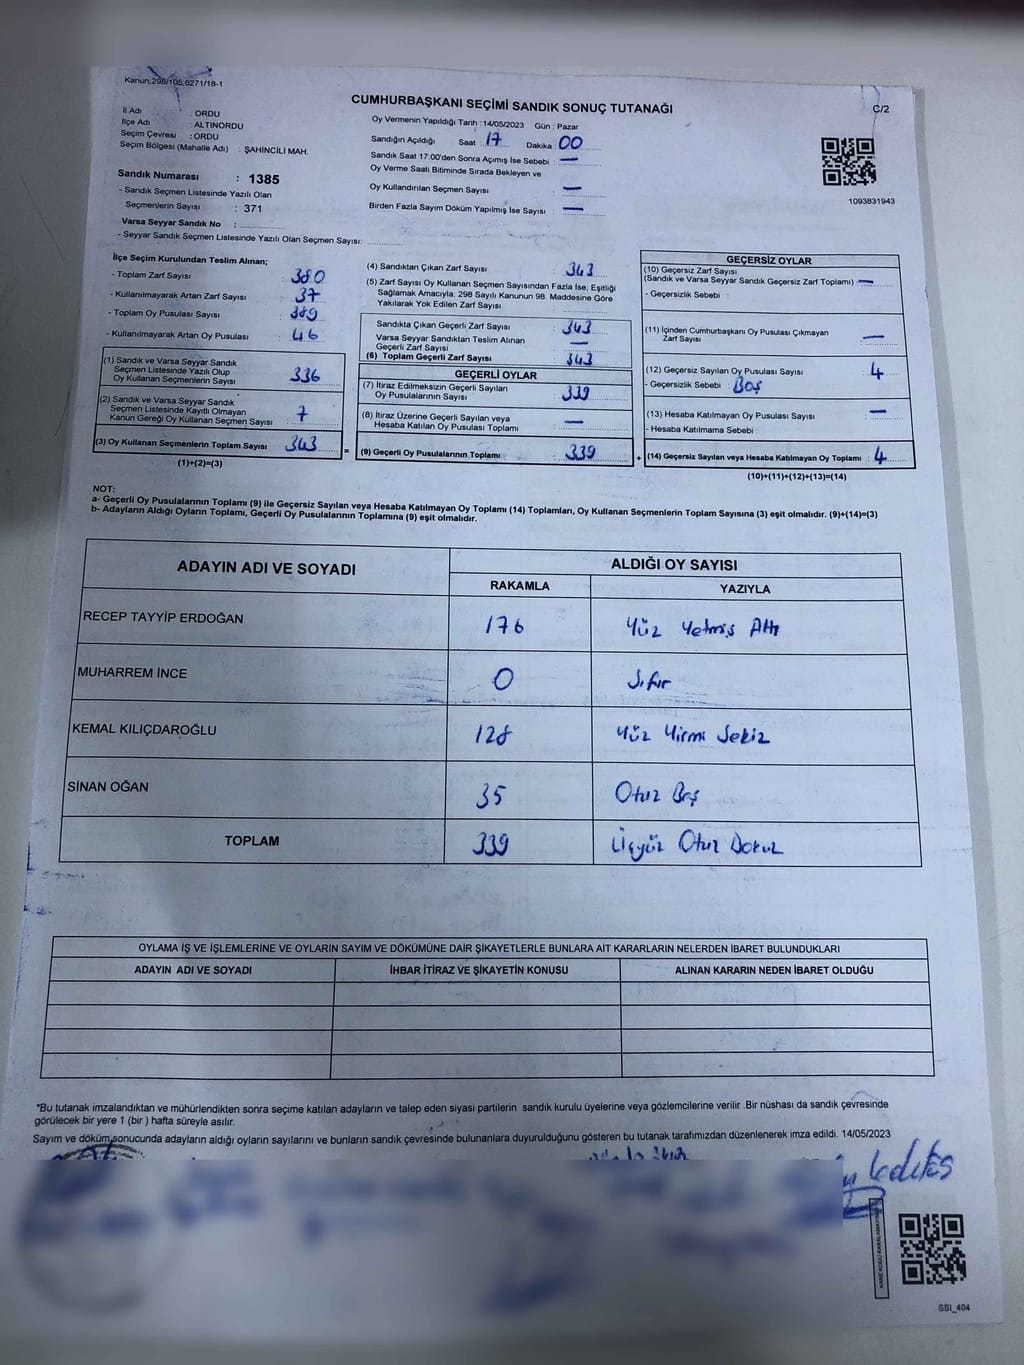 Kanun:298/105,6271/18-1
CUMHURBAŞKANI SEÇİMİ SANDIK SONUÇ TUTANAĞI
C/2
İl Adı : ORDU
İlçe Adı : ALTINORDU
Seçim Çevresi : ORDU
Seçim Bölgesi (Mahalle Adı) : ŞAHİNCİLİ MAH.
Sandık Numarası : 1385
- Sandık Seçmen Listesinde Yazılı Olan
Seçmenlerin Sayısı : 371
Varsa Seyyar Sandık No :
- Seyyar Sandık Seçmen Listesinde Yazılı Olan Seçmen Sayısı:
Oy Vermenin Yapıldığı Tarih :14/05/2023 Gün : Pazar
Sandığın Açıldığı Saat : 17 Dakika : 00
Sandık Saat 17:00'den Sonra Açımış İse Sebebi : —
Oy Verme Saati Bitiminde Sırada Bekleyen ve
Oy Kullandırılan Seçmen Sayısı : —
Birden Fazla Sayım Döküm Yapılmış İse Sayısı : —
1093831943
İlçe Seçim Kurulundan Teslim Alınan;
- Toplam Zarf Sayısı : 380
- Kullanılmayarak Artan Zarf Sayısı : 37
- Toplam Oy Pusulası Sayısı : 389
- Kullanılmayarak Artan Oy Pusulası : 46
(1) Sandık ve Varsa Seyyar Sandık
Seçmen Listesinde Yazılı Olup
Oy Kullanan Seçmenlerin Sayısı : 336
(2) Sandık ve Varsa Seyyar Sandık
Seçmen Listesinde Kayıtlı Olmayan
Kanun Gereği Oy Kullanan Seçmen Sayısı : 7
(3) Oy Kullanan Seçmenlerin Toplam Sayısı : 343
(1)+(2)=(3)
=
(4) Sandıktan Çıkan Zarf Sayısı : 343
(5) Zarf Sayısı Oy Kullanan Seçmen Sayısından Fazla İse, Eşitliği
Sağlamak Amacıyla; 298 Sayılı Kanunun 98. Maddesine Göre
Yakılarak Yok Edilen Zarf Sayısı :
Sandıkta Çıkan Geçerli Zarf Sayısı : 343
Varsa Seyyar Sandıktan Teslim Alınan
Geçerli Zarf Sayısı : —
(6) Toplam Geçerli Zarf Sayısı : 343
GEÇERLİ OYLAR
(7) İtiraz Edilmeksizin Geçerli Sayılan
Oy Pusulalarının Sayısı : 339
(8) İtiraz Üzerine Geçerli Sayılan veya
Hesaba Katılan Oy Pusulası Toplamı : —
(9) Geçerli Oy Pusulalarının Toplamı : 339
+
GEÇERSİZ OYLAR
(10) Geçersiz Zarf Sayısı
(Sandık ve Varsa Seyyar Sandık Geçersiz Zarf Toplamı) : —
- Geçersizlik Sebebi :
(11) İçinden Cumhurbaşkanı Oy Pusulası Çıkmayan
Zarf Sayısı : —
(12) Geçersiz Sayılan Oy Pusulası Sayısı : 4
- Geçersizlik Sebebi : Boş
(13) Hesaba Katılmayan Oy Pusulası Sayısı : —
- Hesaba Katılmama Sebebi :
(14) Geçersiz Sayılan veya Hesaba Katılmayan Oy Toplamı : 4
(10)+(11)+(12)+(13)=(14)
NOT:
a- Geçerli Oy Pusulalarının Toplamı (9) ile Geçersiz Sayılan veya Hesaba Katılmayan Oy Toplamı (14) Toplamları, Oy Kullanan Seçmenlerin Toplam Sayısına (3) eşit olmalıdır. (9)+(14)=(3)
b- Adayların Aldığı Oyların Toplamı, Geçerli Oy Pusulalarının Toplamına (9) eşit olmalıdır.
ADAYIN ADI VE SOYADI
ALDIĞI OY SAYISI
RAKAMLA YAZIYLA
RECEP TAYYİP ERDOĞAN 176 Yüz Yetmiş Altı
MUHARREM İNCE 0 Sıfır
KEMAL KILIÇDAROĞLU 128 Yüz Yirmi Sekiz
SİNAN OĞAN 35 Otuz Beş
TOPLAM 339 Üçyüz Otuz Dokuz
OYLAMA İŞ VE İŞLEMLERİNE VE OYLARIN SAYIM VE DÖKÜMÜNE DAİR ŞİKAYETLERLE BUNLARA AİT KARARLARIN NELERDEN İBARET BULUNDUKLARI
ADAYIN ADI VE SOYADI İHBAR İTİRAZ VE ŞİKAYETİN KONUSU ALINAN KARARIN NEDEN İBARET OLDUĞU
*Bu tutanak imzalandıktan ve mühürlendikten sonra seçime katılan adayların ve talep eden siyasi partilerin sandık kurulu üyelerine veya gözlemcilerine verilir .Bir nüshası da sandık çevresinde
görülecek bir yere 1 (bir ) hafta süreyle asılır.
Sayım ve döküm sonucunda adayların aldığı oyların sayılarını ve bunların sandık çevresinde bulunanlara duyurulduğunu gösteren bu tutanak tarafımızdan düzenlenerek imza edildi. 14/05/2023
SSI_404